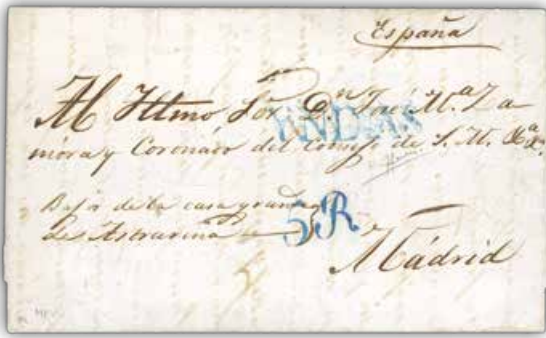 España
Al Yltmo Sor. Dn. José Ma. Za
mora y Coronado del Consejo de S. M. &a. &a.
INDIAS
Bajos de la casa grande
de Astrarena
5R
Madrid